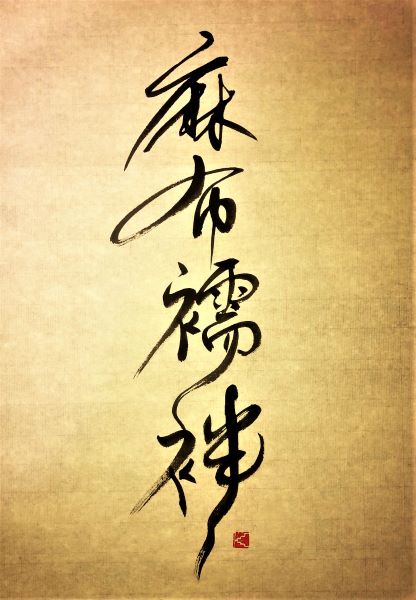 麻布襦袢